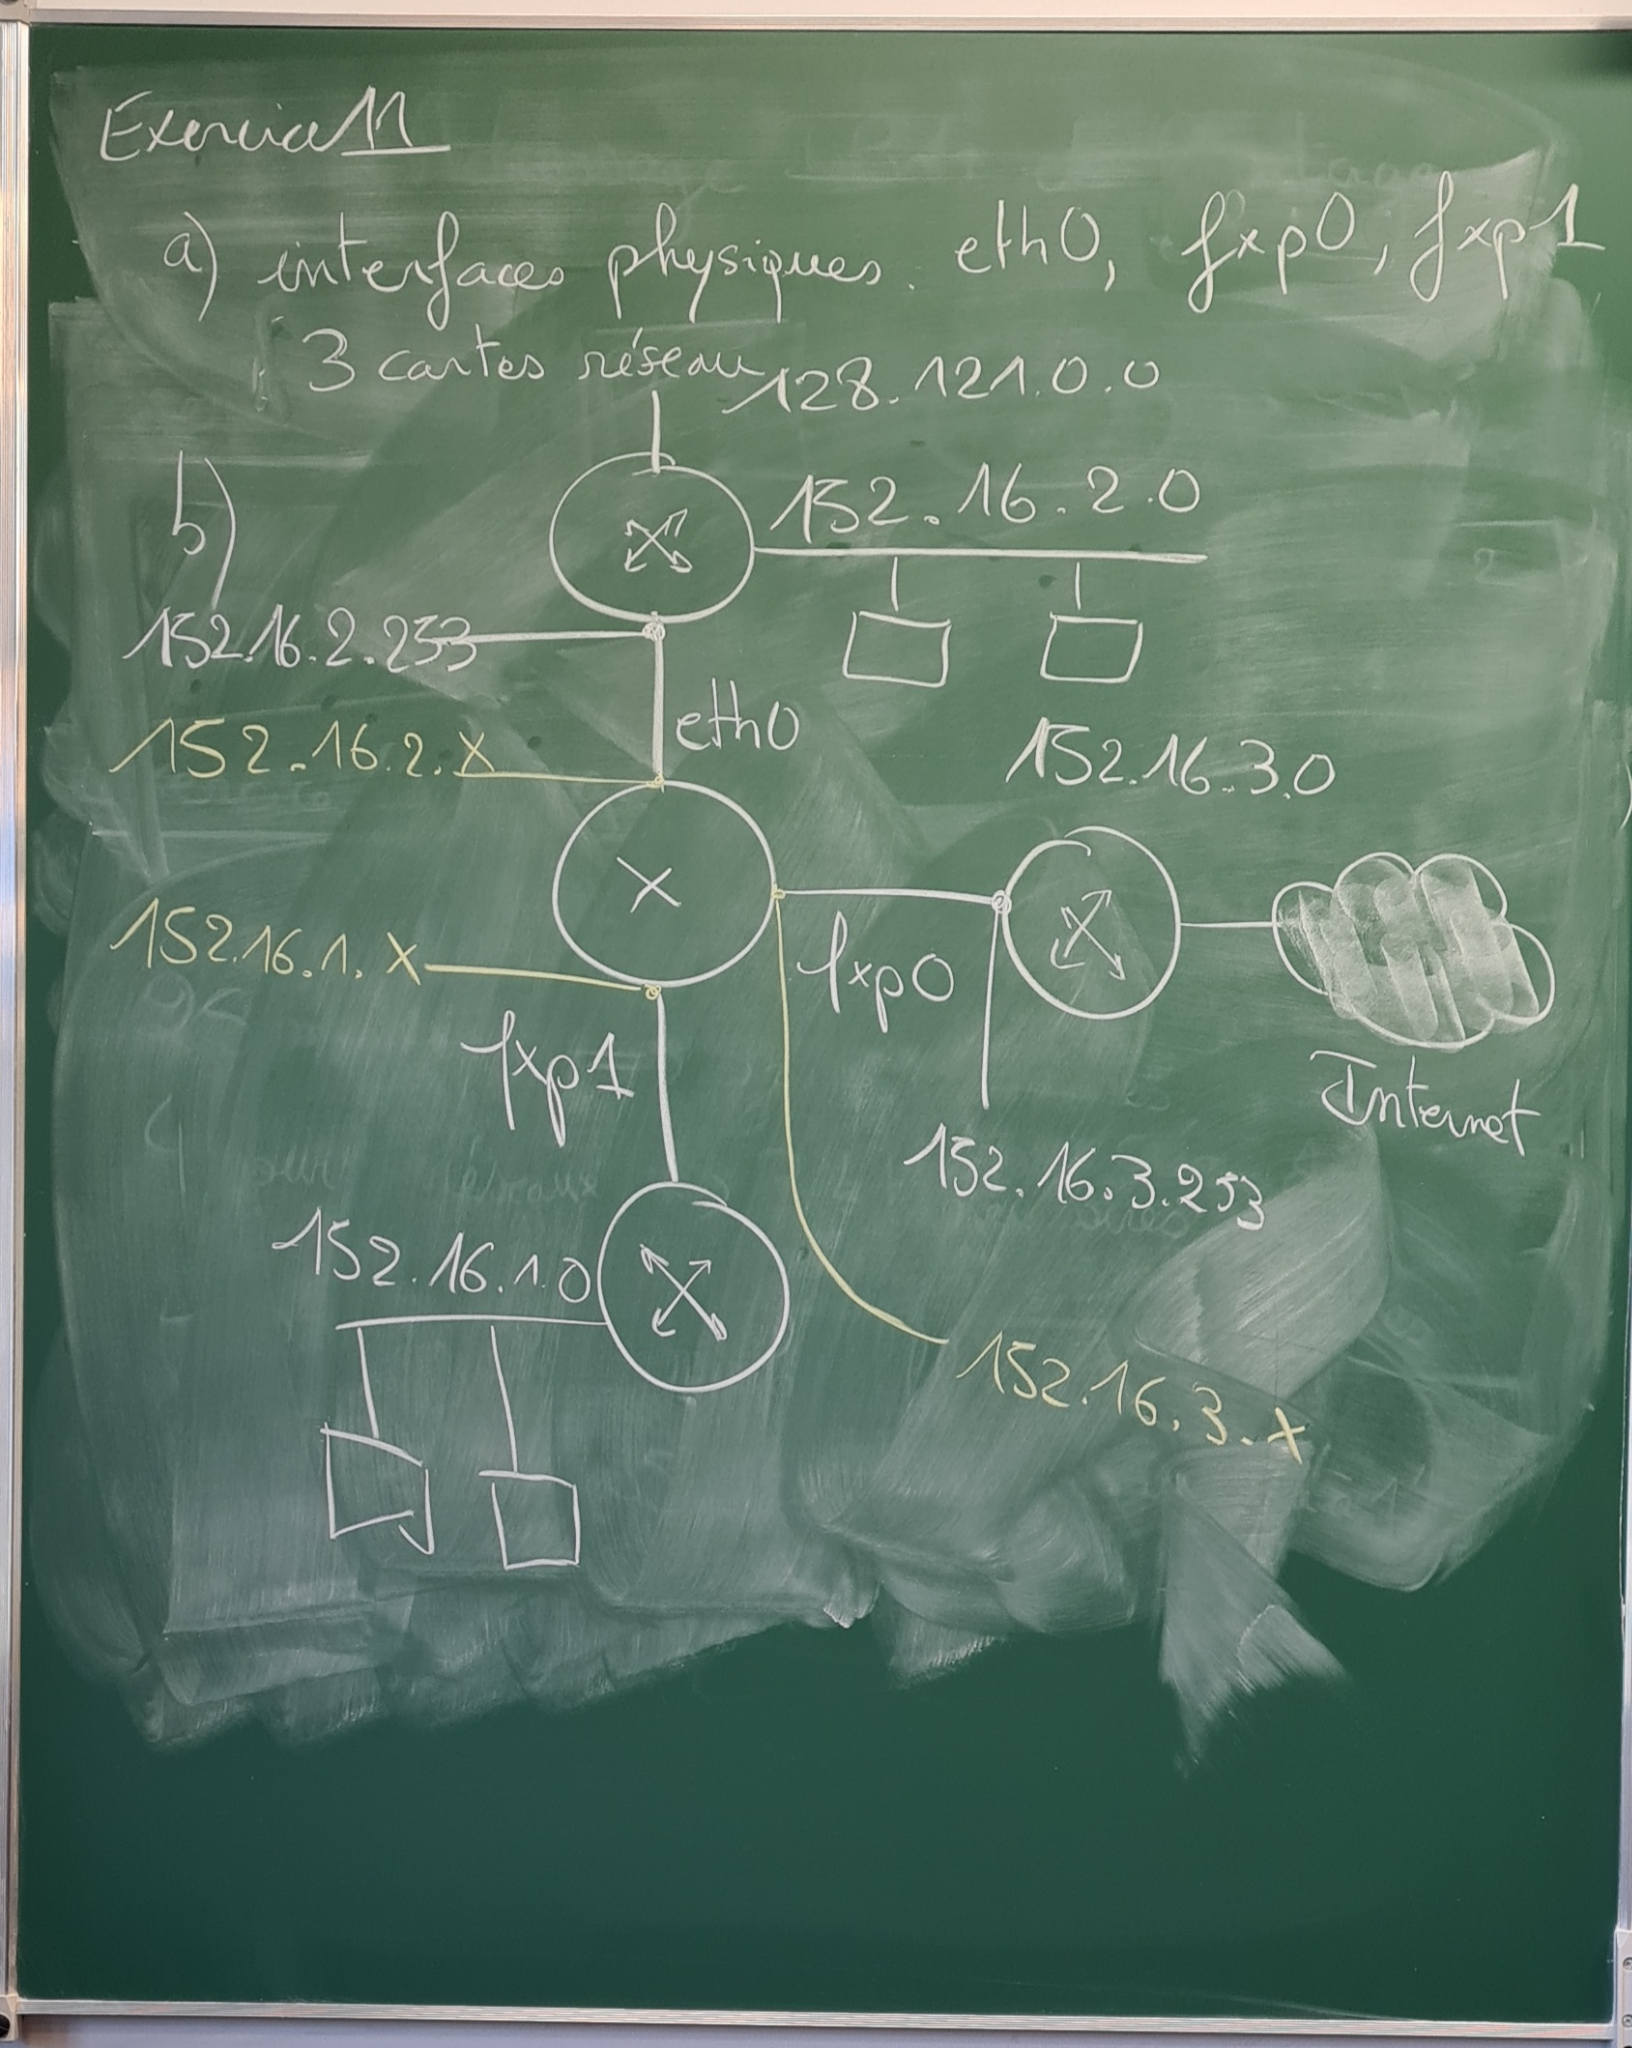 Exercice 11
a) interfaces physiques. eth0, fxp0, fxp1
3 cartes réseau
128.121.0.0
b)
152.16.2.0
152.16.2.253
eth0
152.16.2.X
152.16.3.0
152.16.1.X
fxp0
fxp1
Internet
152.16.3.253
152.16.1.0
152.16.3.X